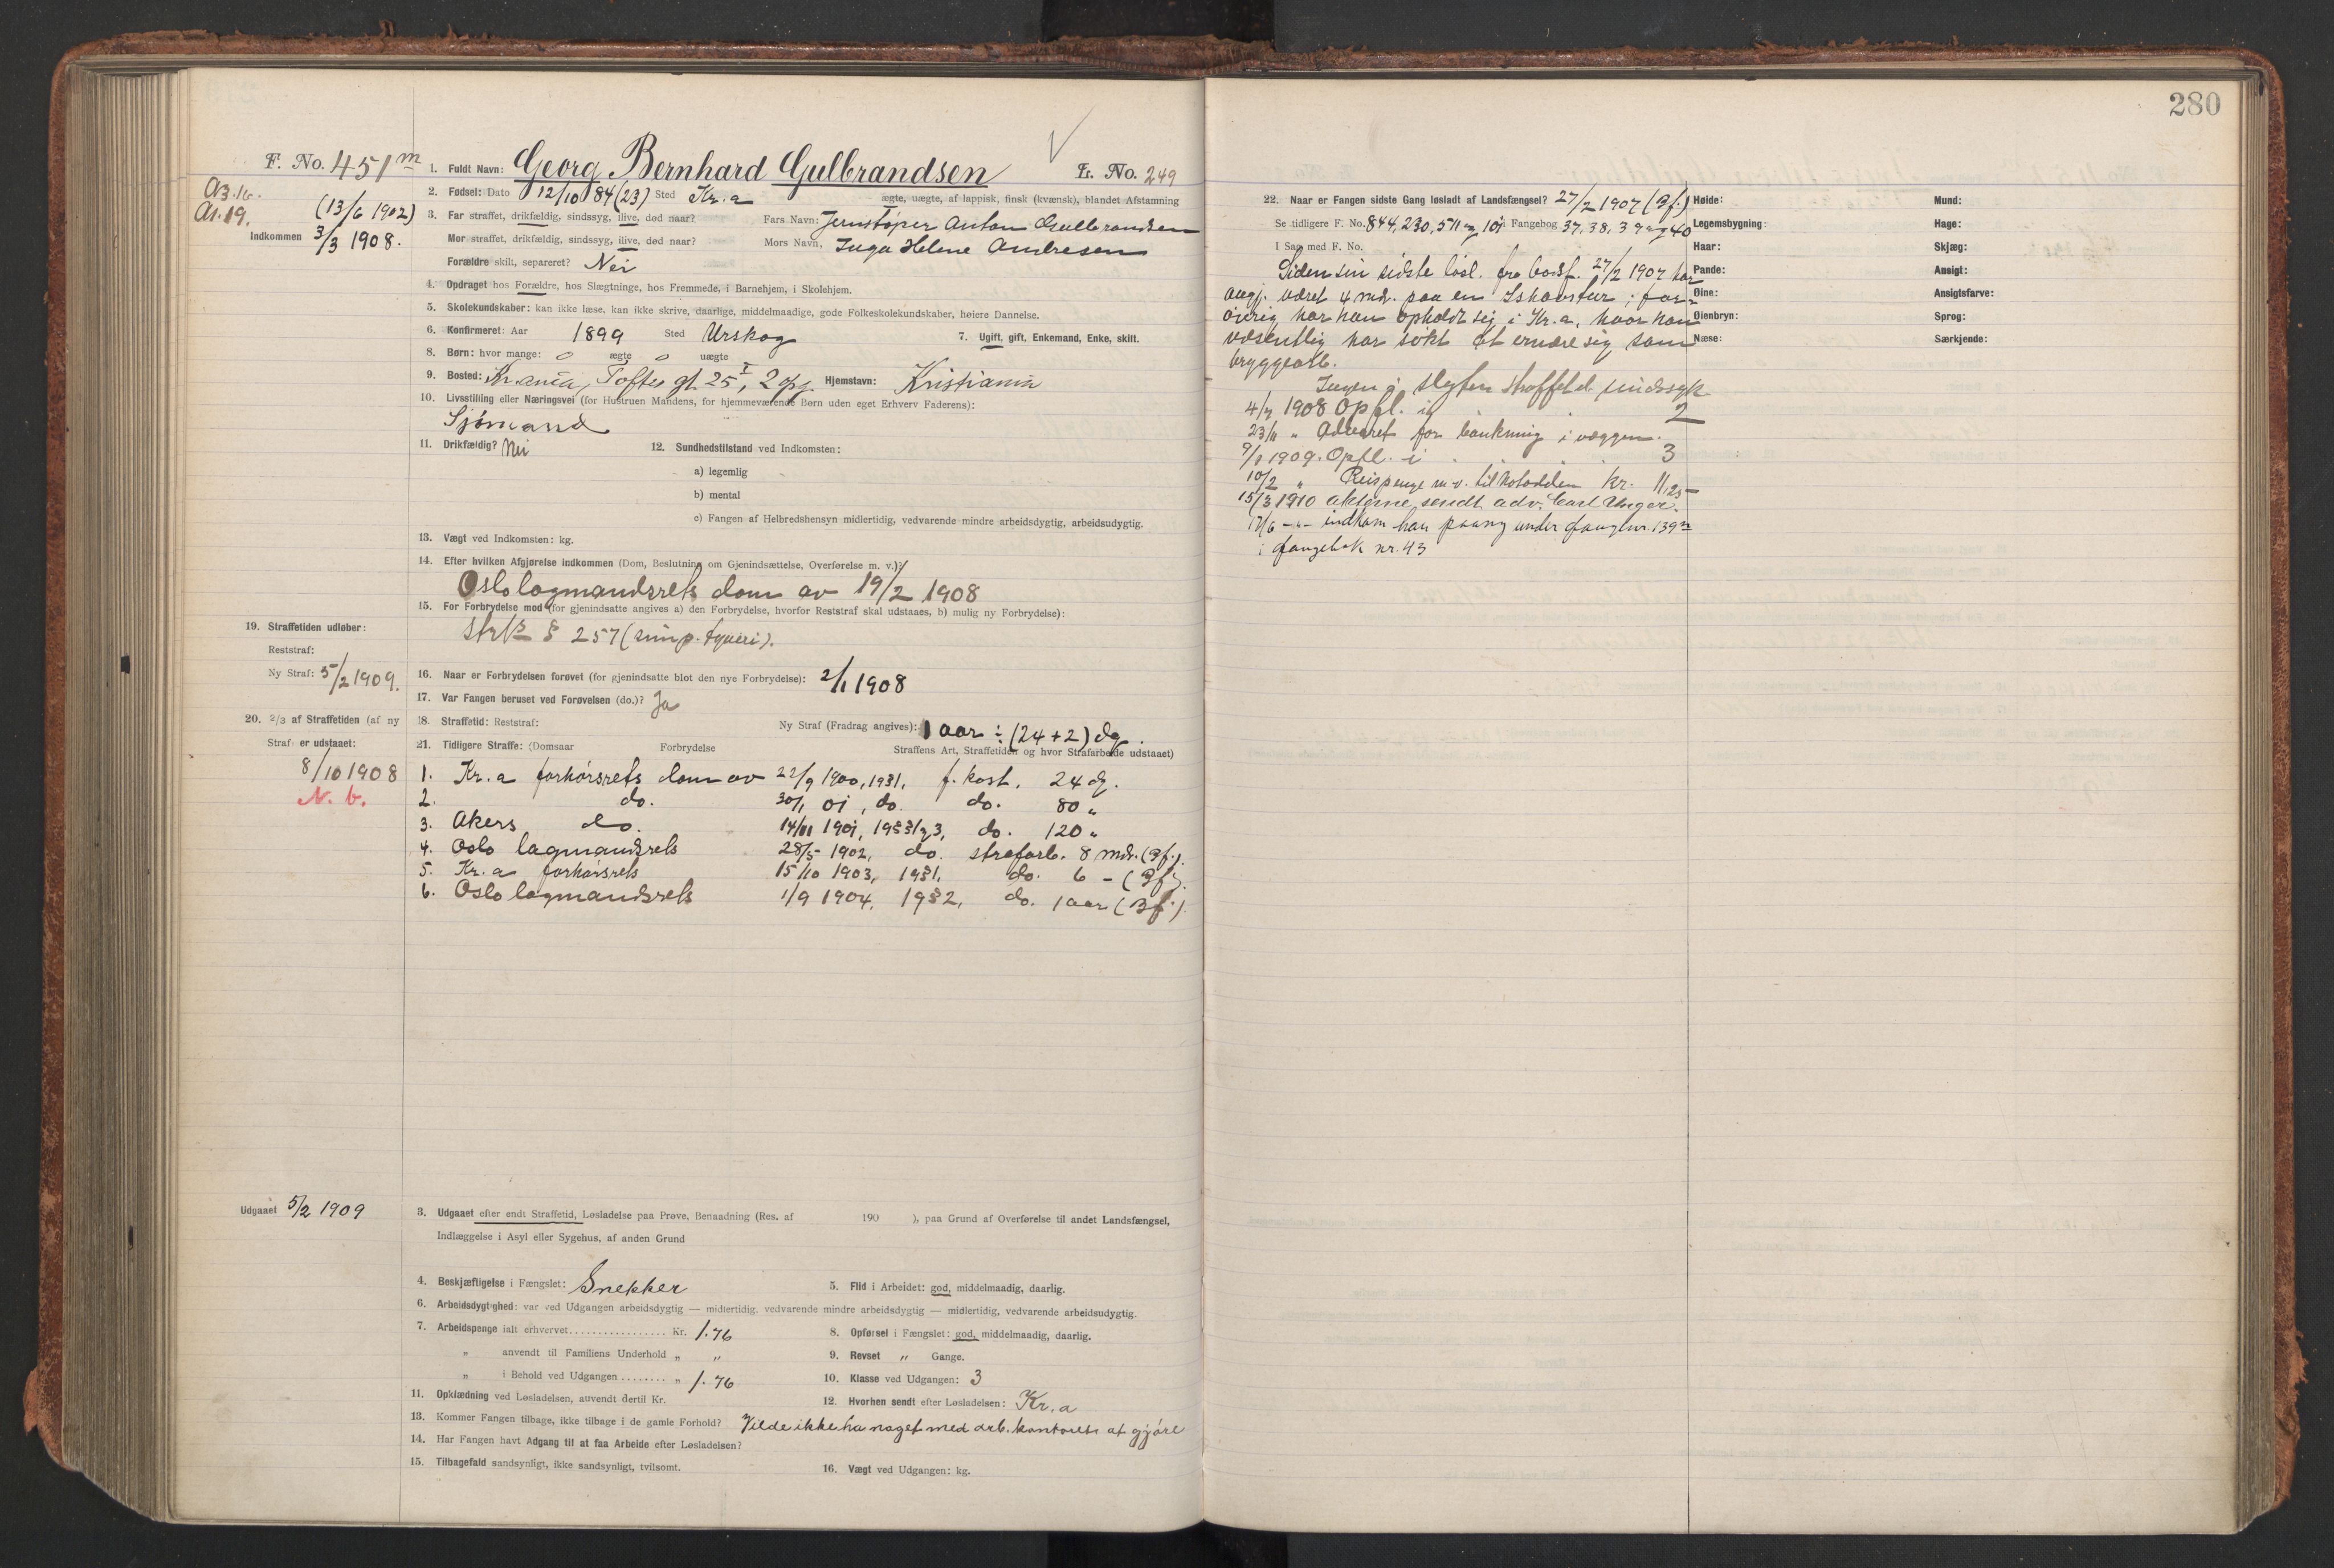 280
F. No. 451 m
1. Fuldt Navn: Georg Bernhard Gulbrandsen
L. No. 249
2. Fødsel: Dato 12/10 84 (23) Sted Kr.a ægte, uægte, af lappisk, finsk (kvænsk), blandet Afstamning
A3.16.
A1.19.
(13/6 1902)
Indkommen 3/3 1908.
3. Far straffet, drikfældig, sindssyg, ilive, død naar? Fars Navn: Jernstøper Anton Gulbrandsen
Mor straffet, drikfældig, sindssyg, ilive, død naar? Mors Navn, Inga Helene Andresen
Forældre skilt, separeret? Nei
4. Opdraget hos Forældre, hos Slægtninge, hos Fremmede, i Barnehjem, i Skolehjem.
5. Skolekundskaber: kan ikke læse, kan ikke skrive, daarlige, middelmaadige, gode Folkeskolekundskaber, høiere Dannelse.
6. Konfirmeret: Aar 1899 Sted Urskog 7. Ugift, gift, Enkemand, Enke, skilt.
8. Børn: hvor mange: 0 ægte 0 uægte
9. Bosted: Kr.ania, Toftes gt. 25 I, 2 opg. Hjemstavn: Kristiania
10. Livsstilling eller Næringsvei (for Hustruen Mandens, for hjemmeværende Børn uden eget Erhverv Faderens):
Sjømand
11. Drikfældig? Nei 12. Sundhedstilstand ved Indkomsten:
a) legemlig
b) mental
c) Fangen af Helbredshensyn midlertidig, vedvarende mindre arbeidsdygtig, arbeidsudygtig.
13. Vægt ved Indkomsten: kg.
14. Efter hvilken Afgjørelse indkommen (Dom, Beslutning om Gjenindsættelse, Overførelse m. v.)?
Oslo lagmandsrets dom av 19/2 1908
15. For Forbrydelse mod (for gjenindsatte angives a) den Forbrydelse, hvorfor Reststraf skal udstaaes, b) mulig ny Forbrydelse):
Strl § 257 (simp. tyveri).
19. Straffetiden udløber:
Reststraf:
Ny Straf: 5/2 1909.
16. Naar er Forbrydelsen forøvet (for gjenindsatte blot den nye Forbrydelse): 2/1 1908
17. Var Fangen beruset ved Forøvelsen (do.)? Ja
20. 2/3 af Straffetiden (af ny
Straf er udstaaet:
8/10 1908
N. b.
18. Straffetid: Reststraf: Ny Straf (Fradrag angives): 1 aar ÷ (24 + 2) dg.
21. Tidligere Straffe: (Domsaar Forbrydelse Straffens Art, Straffetiden og hvor Strafarbeide udstaaet)
1. Kr.a forhørsrets dom av 22/9 1900, 19§1, f. kost, 24 dg.
2. do. 30/1 01, do. do. 80 "
3. Akers do. 14/11 1901, 19§§1,3, do. 120 "
4. Oslo lagmandsrets 28/5 1902, do. strafarb. 8 mdr. (Bf.).
5. Kr.a forhørsrets 15/10 1903, 19§1, do. 6 – (Bf.).
6. Oslo lagmandsrets 1/9 1904, 19§2, do. 1 aar (Bf.).
Udgaaet 5/2 1909
3. Udgaaet efter endt Straffetid, Løsladelse paa Prøve, Benaadning (Res. af 190 ), paa Grund af Overførelse til andet Landsfængsel,
Indlæggelse i Asyl eller Sygehus, af anden Grund
4. Beskjæftigelse i Fængslet: Snekker 5. Flid i Arbeidet: god, middelmaadig, daarlig.
6. Arbeidsdygtighed: var ved Udgangen arbeidsdygtig — midlertidig, vedvarende mindre arbeidsdygtig — midlertidig, vedvarende arbeidsudygtig.
7. Arbeidspenge ialt erhvervet ................. Kr. 1.76 8. Opførsel i Fængslet: god, middelmaadig, daarlig.
" anvendt til Familiens Underhold " " 9. Revset " Gange.
" i Behold ved Udgangen ........ " 1.76 10. Klasse ved Udgangen: 3
11. Opklædning ved Løsladelsen, anvendt dertil Kr. 12. Hvorhen sendt efter Løsladelsen: Kr.a
13. Kommer Fangen tilbage, ikke tilbage i de gamle Forhold? Vilde ikke ha noget med arb. kontoret at gjøre
14. Har Fangen havt Adgang til at faa Arbeide efter Løsladelsen?
15. Tilbagefald sandsynligt, ikke sandsynligt, tvilsomt. 16. Vægt ved Udgangen: kg.
22. Naar er Fangen sidste Gang løsladt af Landsfængsel? 27/2 1907 (Bf.)
Se tidligere F. No. 844, 230, 511 og 101 Fangebog 37, 38, 39 og 40
I Sag med F. No.
Siden sin sidste løsl. fra Bodsf. 27/2 1907 har
angj. været 4 md. paa en Ishavstur; for-
øvrig har han opholdt sig i Kr.a, hvor han
væsentlig har søkt at ernære sig som
bryggearb.
Ingen i slegten straffet el. sindssyk
4/7 1908 Opfl. i 2
23/11 " Advaret for bankning i væggen.
9/1 1909. Opfl. i 3
10/2 " Reispenge m.v. til Notodden kr. 11,25
15/3 1910 akterne sendt adv. Carl Unger.
17/6 -"- indkom han paany under fangenr. 139 m
i fangebok nr. 43
Høide:
Legemsbygning:
Haar:
Pande:
Øine:
Øienbryn:
Næse:
Mund:
Hage:
Skjæg:
Ansigt:
Ansigtsfarve:
Sprog:
Særkjende: